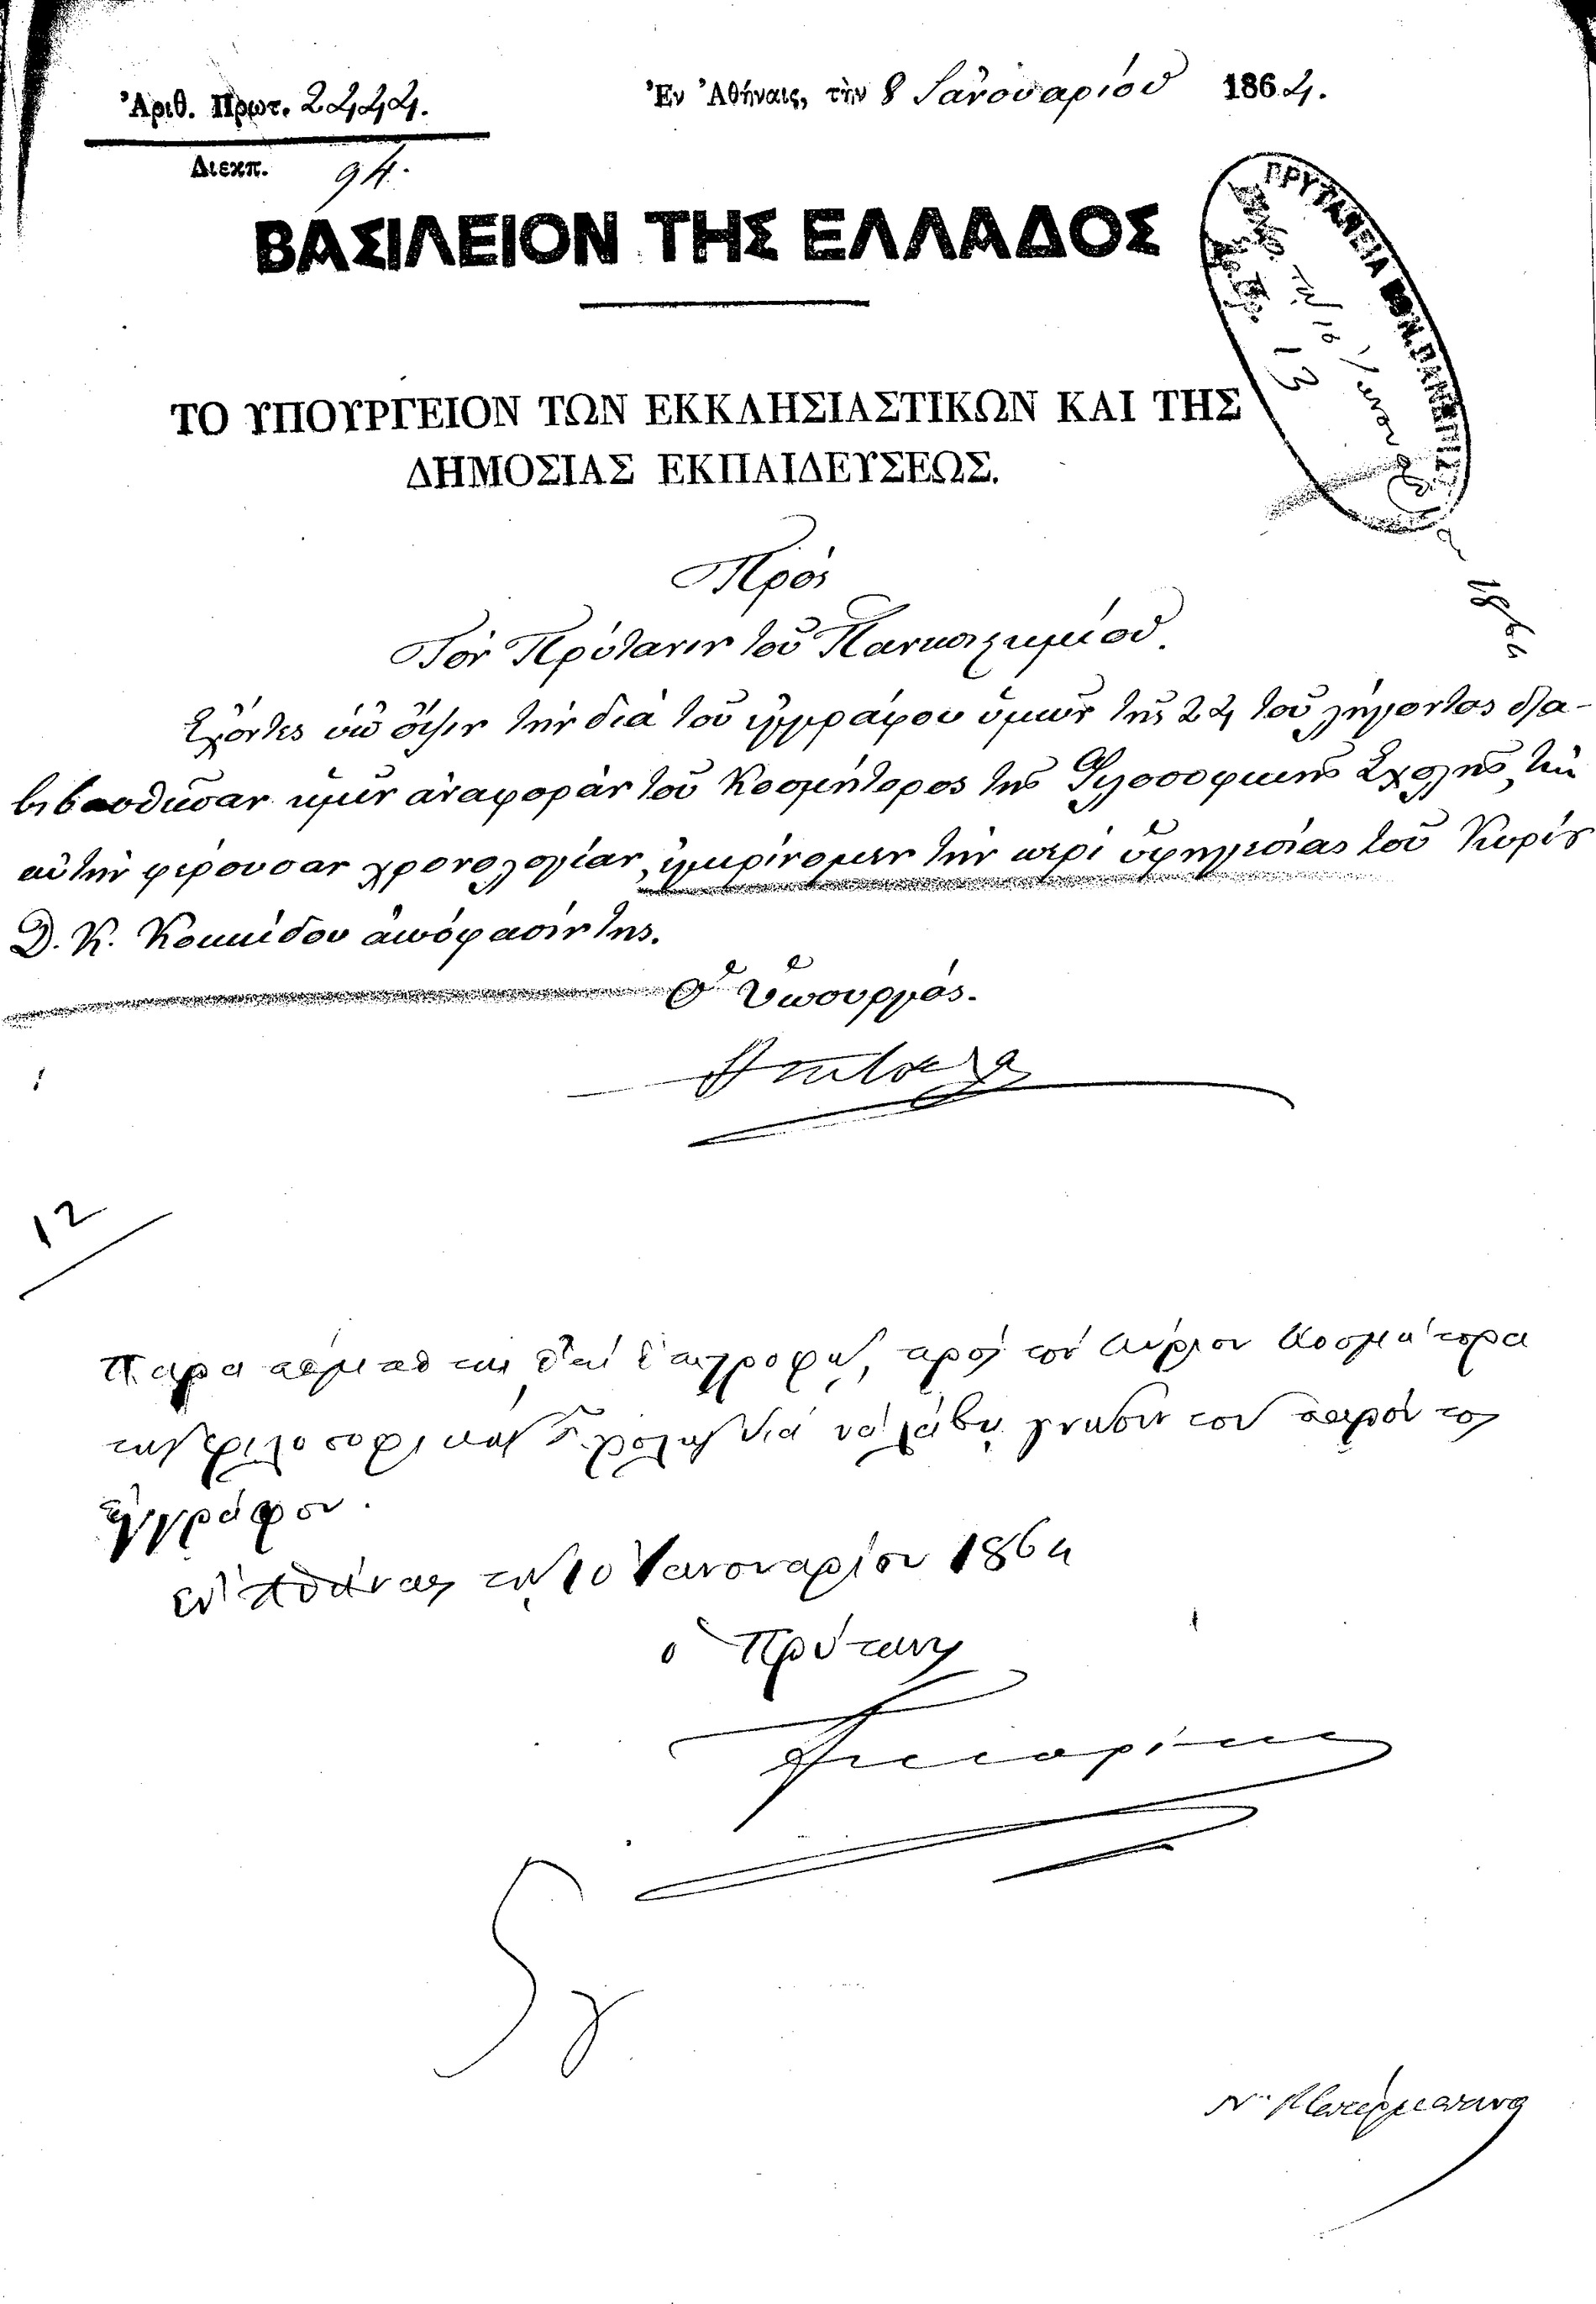 Ἀριθ. Πρωτ. 2444.
Ἐν Ἀθήναις, τὴν 8 Ἰανουαρίου 1864.
Διεκπ. 94.
ΒΑΣΙΛΕΙΟΝ ΤΗΣ ΕΛΛΑΔΟΣ
ΠΡΥΤΑΝΕΙΑ ΕΘΝ. ΠΑΝΕΠΙΣΤ
13
ΤΟ ΥΠΟΥΡΓΕΙΟΝ ΤΩΝ ΕΚΚΛΗΣΙΑΣΤΙΚΩΝ ΚΑΙ ΤΗΣ
ΔΗΜΟΣΙΑΣ ΕΚΠΑΙΔΕΥΣΕΩΣ.
Πρὸς
Τὸν Πρύτανιν τοῦ Πανεπιστημίου.
Ἔχοντες ὑπ' ὄψιν τὴν διὰ τοῦ ἐγγράφου ὑμῶν τῆς 24 τοῦ λήγοντος δια-
βιβασθεῖσαν ἡμῖν ἀναφορὰν τοῦ Κοσμήτορος τῆς Φιλοσοφικῆς Σχολῆς, τὴν
αὐτὴν φέρουσαν χρονολογίαν, ἐγκρίνομεν τὴν περὶ ὑφηγεσίας τοῦ Κυρίου
Δ. Κ. Κοκκίδου ἀπόφασίν της.
Ὁ Ὑπουργός.
12
πρὸς τὸν Κύριον Κοσμήτορα
τῆς φιλοσοφικῆς Σχολῆς διὰ νὰ λάβῃ γνῶσιν τοῦ παρόντος
ἐγγράφου.
ἐν Ἀθήναις τὴν 10 Ἰανουαρίου 1864
ὁ Πρύτανις